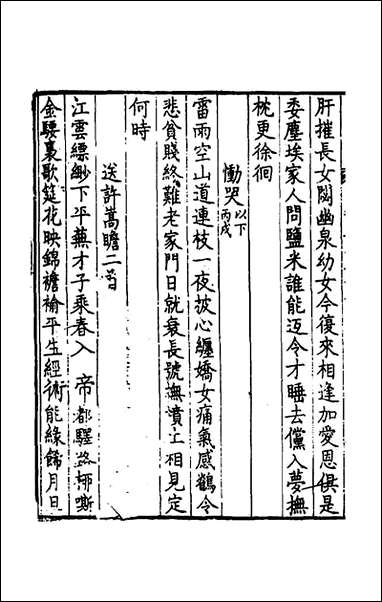 肝摧長女閟幽泉幼女今復來相逢加愛恩俱是
委塵埃家人問鹽米誰能迈令才睡去儻入夢撫
枕更徐徊
慟哭以下丙戌
雷雨空山道連枝一夜披心纏嬌女痛氣感鶺令
悲貧賤終難老家門日就衰長號撫墳土相見定
何時
送許嵩瞻二首
江雲縹緲下平蕪才子乘春入 帝都驛路栁嘶
金騕裊歌筵花映錦襜褕平生經術能緣餙月旦